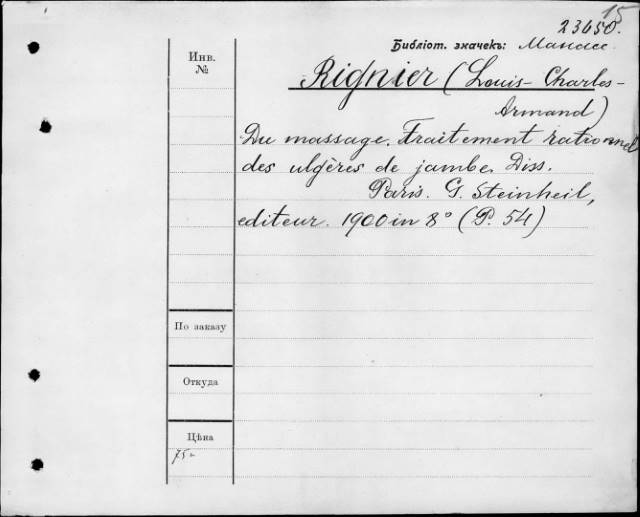 15
23650.
Библіот. значекъ: Массаж
Инв.
№
Rignier (Louis-Charles-
Armand)
Du massage. Traitement rationnel
des ulgères de jambe. Diss.
Paris. G. Steinheil,
editeur. 1900 in 8° (P. 54)
По заказу
Откуда
Цѣна
75